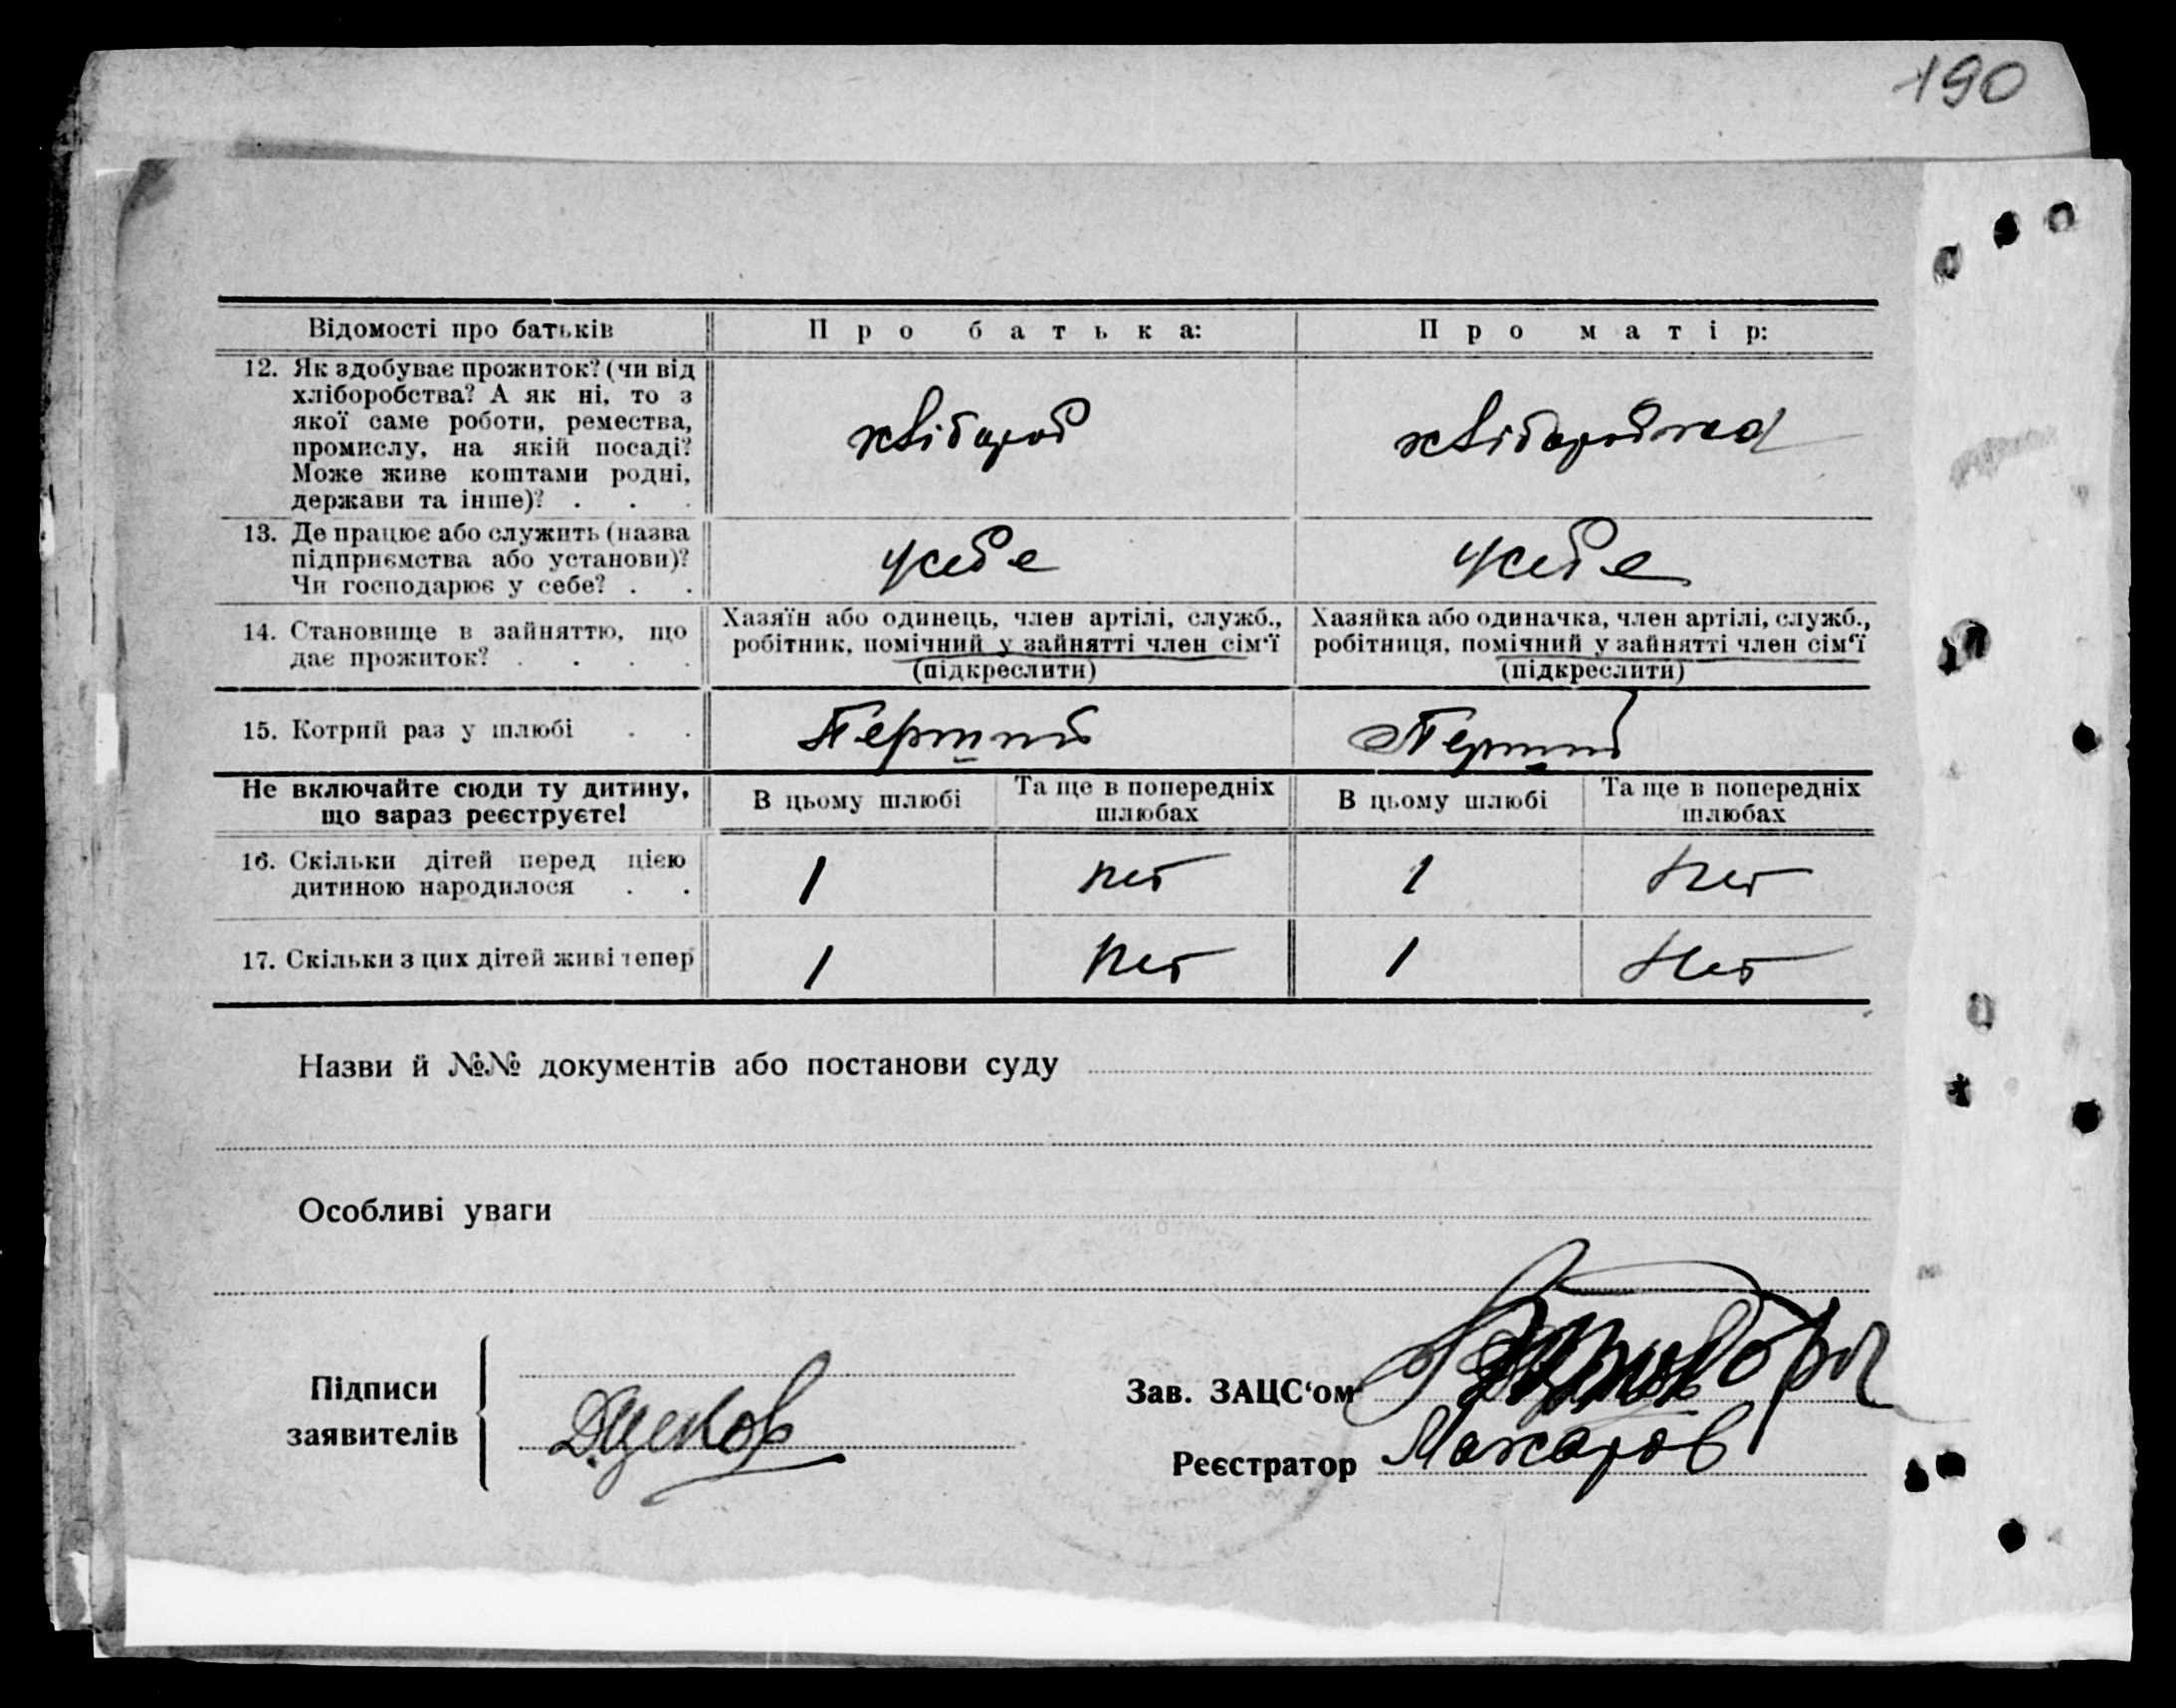 190
Відомості про батьків
Про батька:
Про матір:
12. Як здобуває прожиток? (чи від
хліборобства? А як ні, то з
якої саме роботи, ремества,
промислу, на якій посаді?
Може живе коштами родні,
держави та інше)? . . .
хлібороб
хліборобка
13. Де працює або служить (назва
підприємства або установи)?
Чи господарює у себе? . .
у себе
у себе
14. Становище в зайняттю, що
дає прожиток? . . . .
Хазяїн або одинець, член артілі, служб.,
робітник, помічний у зайнятті член сім‘ї
(підкреслити)
Хазяйка або одиначка, член артілі, служб.,
робітниця, помічний у зайнятті член сім‘ї
(підкреслити)
15. Котрий раз у шлюбі . .
Перший
Перший
Не включайте сюди ту дитину,
що зараз реєструєте!
В цьому шлюбі
Та ще в попередніх
шлюбах
В цьому шлюбі
Та ще в попередніх
шлюбах
16. Скільки дітей перед цією
дитиною народилося . .
1
нет
1
нет
17. Скільки з цих дітей живі тепер
1
нет
1
нет
Назви й №№ документів або постанови суду
Особливі уваги
Підписи
заявителів
Зав. ЗАЦС‘ом
Реєстратор Макаров